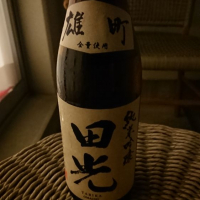 雄町
全量使用
純米吟醸
田光